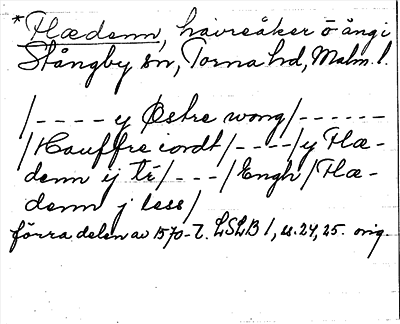 *Flædenn, havreåker o äng i
Stångby sn, Torna hd, Malm. l.
/---- y Østre wong/------
/Hauffre iordt/----/y Flæ-
denn ij tr/---/Engh/Flæ-
denn j less/
förra delen av 1570-t. LSLB 1, s. 24, 25. orig.